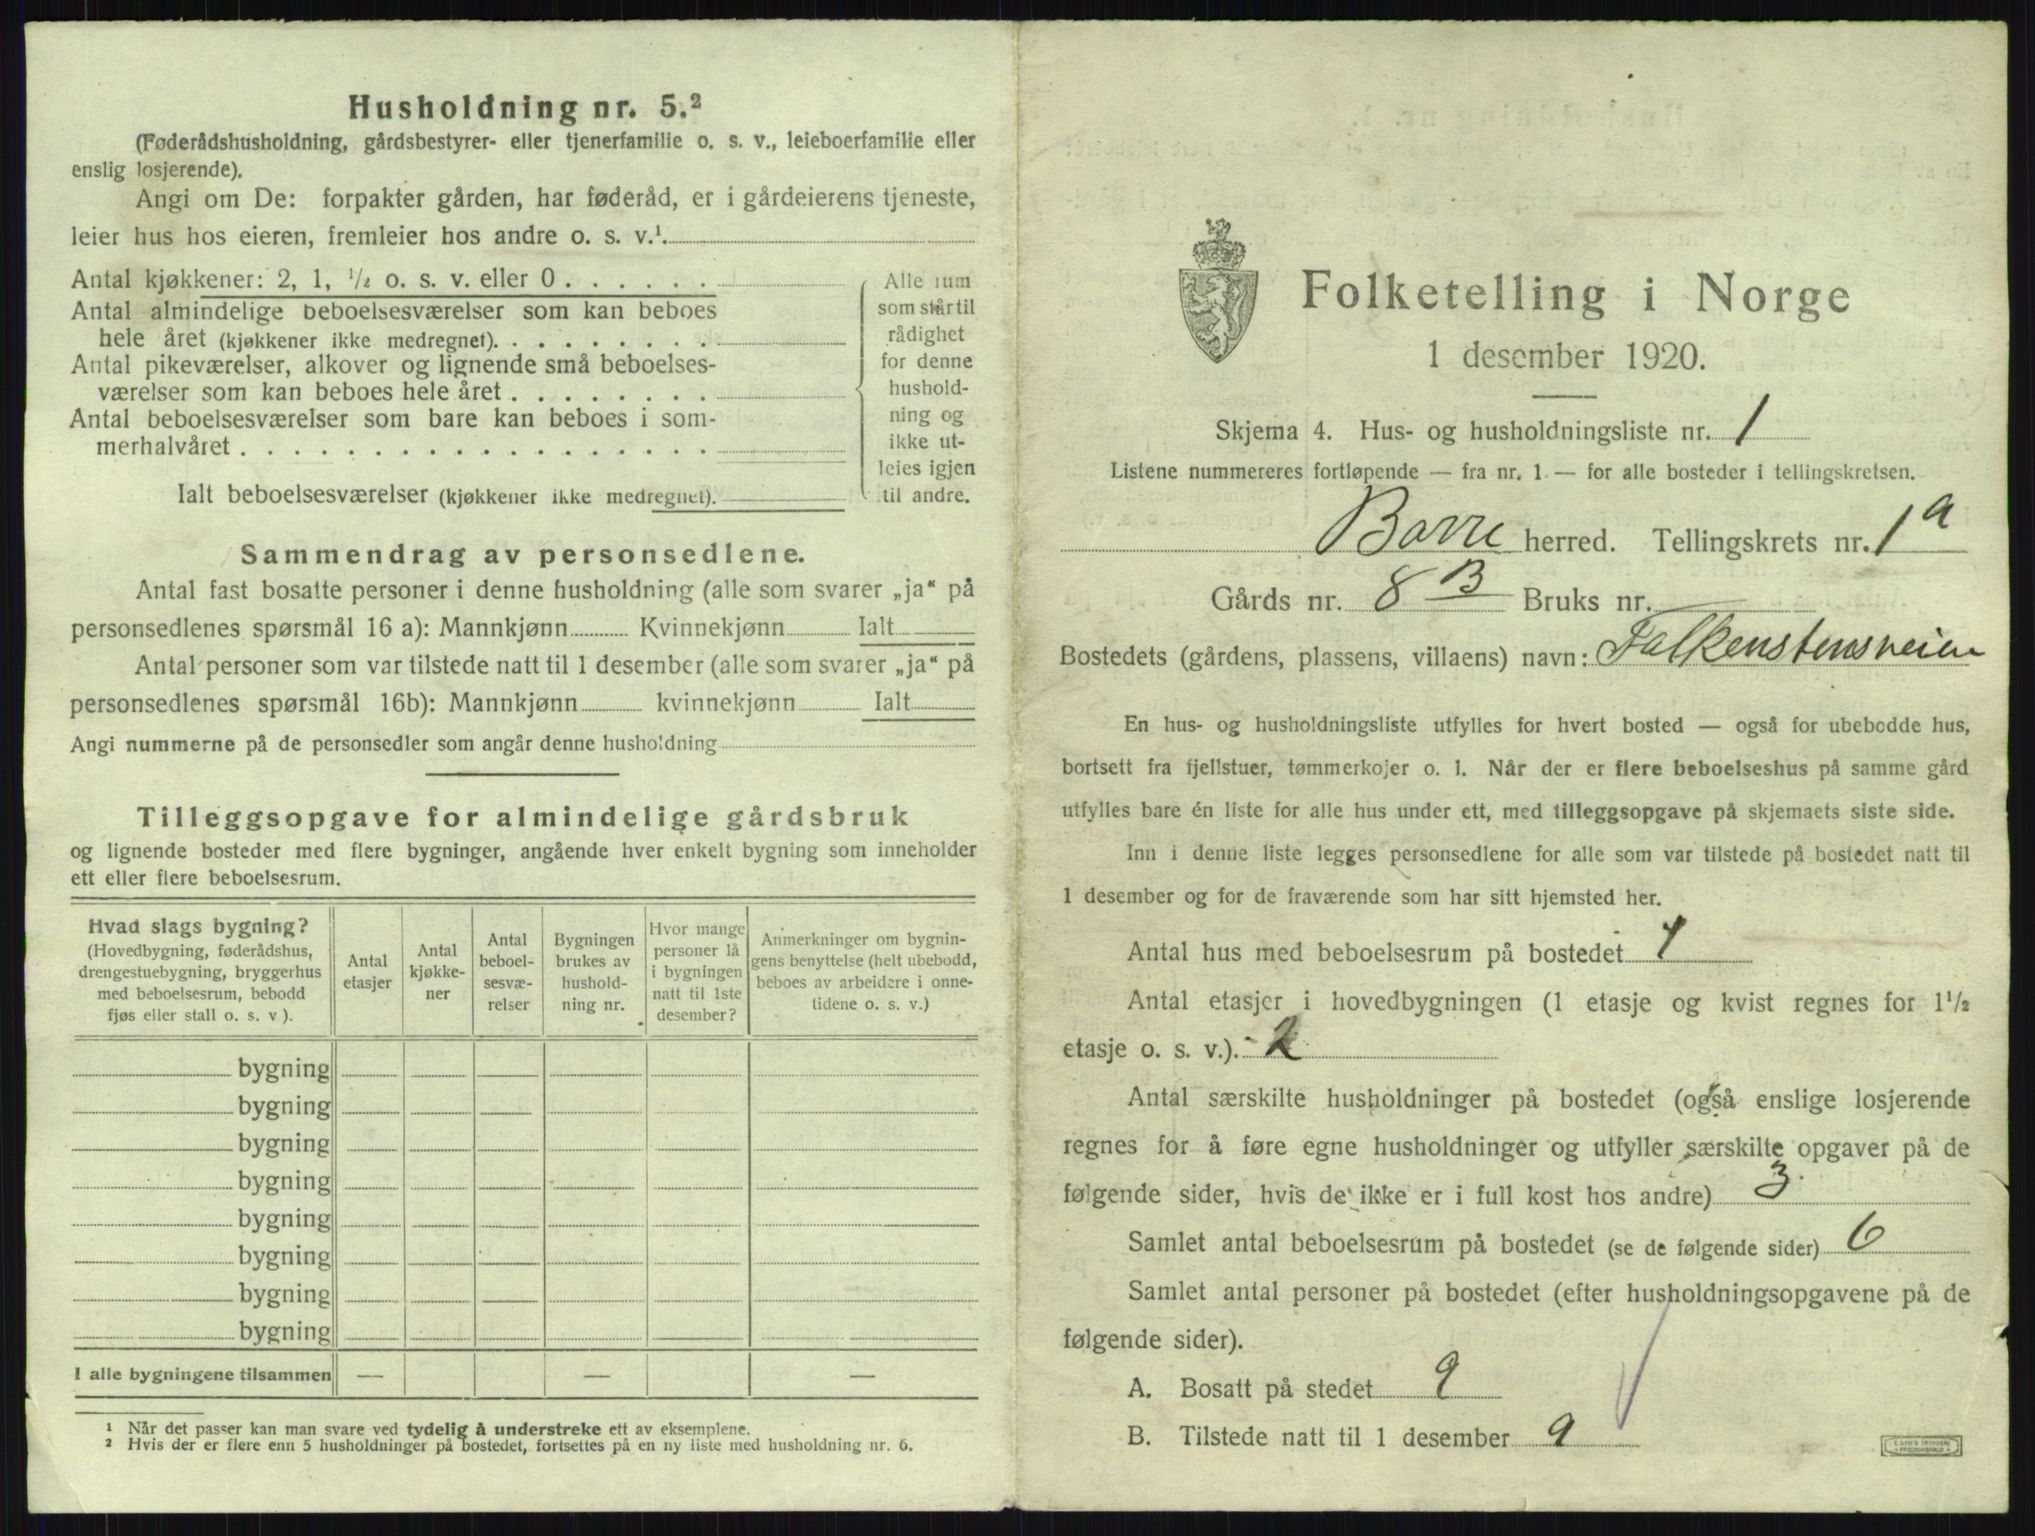 Husholdning nr. 5.²
(Føderådshusholdning, gårdsbestyrer- eller tjenerfamilie o. s. v., leieboerfamilie eller
enslig losjerende).
Angi om De: forpakter gården, har føderåd, er i gårdeierens tjeneste,
leier hus hos eieren, fremleier hos andre o. s. v.¹.
Antal kjøkkener: 2, 1, ½ o. s. v. eller 0 . . . . . .
Antal almindelige beboelsesværelser som kan beboes
hele året (kjøkkener ikke medregnet). . . . . . . . .
Antal pikeværelser, alkover og lignende små beboelses-
værelser som kan beboes hele året . . . . . . . .
Antal beboelsesværelser som bare kan beboes i som-
merhalvåret . . . . . . . . . . . . . . . . . .
Ialt beboelsesværelser (kjøkkener ikke medregnet).
Alle rum
som står til
rådighet
for denne
hushold-
ning og
ikke ut-
leies igjen
til andre.
Sammendrag av personsedlene.
Antal fast bosatte personer i denne husholdning (alle som svarer „ja“ på
personsedlenes spørsmål 16 a): Mannkjønn Kvinnekjønn Ialt
Antal personer som var tilstede natt til 1 desember (alle som svarer „ja“ på
personsedlenes spørsmål 16b): Mannkjønn kvinnekjønn Ialt
Angi nummerne på de personsedler som angår denne husholdning
Tilleggsopgave for almindelige gårdsbruk
og lignende bosteder med flere bygninger, angående hver enkelt bygning som inneholder
ett eller flere beboelsesrum.
Hvad slags bygning?
(Hovedbygning, føderådshus,
drengestuebygning, bryggerhus
med beboelsesrum, bebodd
fjøs eller stall o. s. v ).
Antal
etasjer
Antal
kjøkke-
ner
Antal
beboel-
sesvæ-
relser
Bygningen
brukes av
hushold-
ning nr.
Hvor mange
personer lå
i bygningen
natt til 1ste
desember?
Anmerkninger om bygnin-
gens benyttelse (helt ubebodd,
beboes av arbeidere i onne-
tidene o. s. v.)
bygning
bygning
bygning
bygning
bygning
bygning
bygning
bygning
I alle bygningene tilsammen — — —
¹ Når det passer kan man svare ved tydelig å understreke ett av eksemplene.
² Hvis der er flere enn 5 husholdninger på bostedet, fortsettes på en ny liste med husholdning nr. 6.
Folketelling i Norge
1 desember 1920.
Skjema 4. Hus- og husholdningsliste nr. 1
Listene nummereres fortløpende — fra nr. 1 — for alle bosteder i tellingskretsen.
Borre herred. Tellingskrets nr. 1 a
Gårds nr. 8 B Bruks nr. —
Bostedets (gårdens, plassens, villaens) navn: Falkenstensveien
En hus- og husholdningsliste utfylles for hvert bosted — også for ubebodde hus,
bortsett fra fjellstuer, tømmerkojer o. l. Når der er flere beboelseshus på samme gård
utfylles bare én liste for alle hus under ett, med tilleggsopgave på skjemaets siste side.
Inn i denne liste legges personsedlene for alle som var tilstede på bostedet natt til
1 desember og for de fraværende som har sitt hjemsted her.
Antal hus med beboelsesrum på bostedet 1
Antal etasjer i hovedbygningen (1 etasje og kvist regnes for 1½
etasje o. s. v.). 2
Antal særskilte husholdninger på bostedet (også enslige losjerende
regnes for å føre egne husholdninger og utfyller særskilte opgaver på de
følgende sider, hvis de ikke er i full kost hos andre) 3
Samlet antal beboelsesrum på bostedet (se de følgende sider) 6
Samlet antal personer på bostedet (efter husholdningsopgavene på de
følgende sider).
A. Bosatt på stedet 9
B. Tilstede natt til 1 desember 9